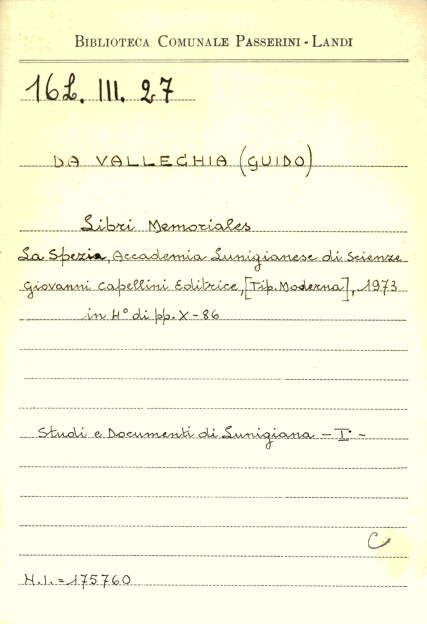 BIBLIOTECA COMUNALE PASSERINI - LANDI
16L. III. 27
DA VALLECHIA (GUIDO)
Libri Memoriales
La Spezia, Accademia Lunigianese di Scienze
Giovanni Capellini Editrice, [Tip. Moderna], 1973
in 4° di pp. X-86
Studi e Documenti di Lunigiana - I -
C
N.I. = 175760